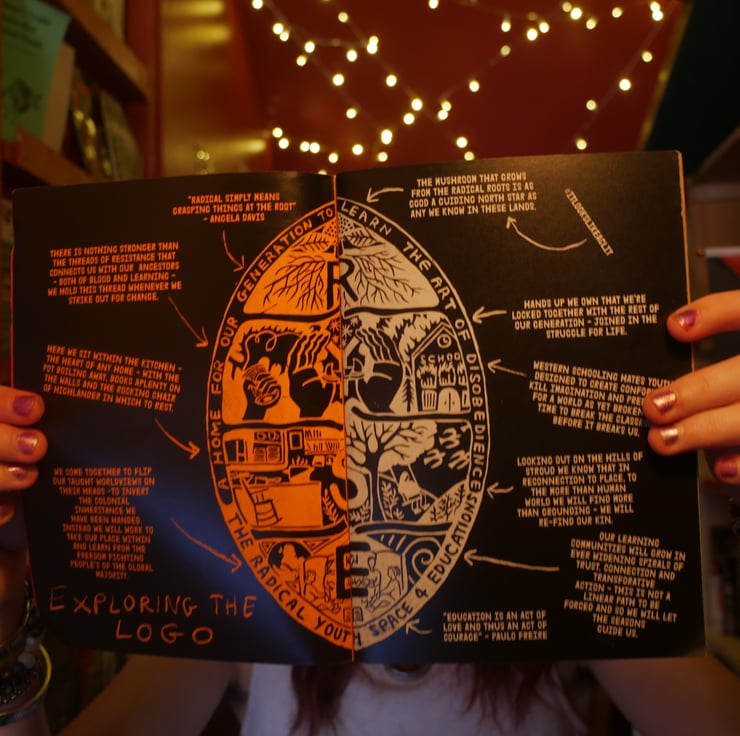 "RADICAL SIMPLY MEANS
GRASPING THINGS AT THE ROOT"
- ANGELA DAVIS
THERE IS NOTHING STRONGER THAN
THE THREADS OF RESISTANCE THAT
CONNECTS US WITH OUR ANCESTORS
- BOTH OF BLOOD AND LEARNING -
WE HOLD THIS THREAD WHENEVER WE
STRIKE OUT FOR CHANGE.
HERE WE SIT WITHIN THE KITCHEN -
THE HEART OF ANY HOME - WITH THE
POT BOILING AWAY, BOOKS APLENTY ON
THE WALLS AND THE ROCKING CHAIR
OF HIGHLANDER IN WHICH TO REST.
WE COME TOGETHER TO FLIP
OUR TAUGHT WORLDVIEWS ON
THEIR HEADS -TO INVERT
THE COLONIAL
INHERITANCE WE
HAVE BEEN HANDED.
INSTEAD WE WILL WORK TO
TAKE OUR PLACE WITHIN
AND LEARN FROM THE
FREEDOM FIGHTING
PEOPLE'S OF THE GLOBAL
MAJORITY.
EXPLORING THE
LOGO
THE RADICAL YOUTH SPACE 4 EDUCATION
A HOME FOR OUR GENERATION TO LEARN THE ART OF DISOBEDIENCE
R
SCHOO
E
THE MUSHROOM THAT GROWS
FROM THE RADICAL ROOTS IS AS
GOOD A GUIDING NORTH STAR AS
ANY WE KNOW IN THESE LANDS.
HANDS UP WE OWN THAT WE'RE
LOCKED TOGETHER WITH THE REST OF
OUR GENERATION - JOINED IN THE
STRUGGLE FOR LIFE.
WESTERN SCHOOLING HATES YOUTH
DESIGNED TO CREATE
KILL IMAGINATION AND
FOR A WORLD AS YET BROKEN
TIME TO BREAK THE
BEFORE IT BREAKS US.
LOOKING OUT ON THE HILLS OF
STROUD WE KNOW THAT IN
RECONNECTION TO PLACE, TO
THE MORE THAN HUMAN
WORLD WE WILL FIND MORE
THAN GROUNDING - WE WILL
RE-FIND OUR KIN.
OUR LEARNING
COMMUNITIES WILL GROW IN
EVER WIDENING SPIRALS OF
TRUST, CONNECTION AND
TRANSFORMATIVE
ACTION - THIS IS NOT A
LINEAR PATH TO BE
FORCED AND SO WE WILL LET
THE SEASONS
GUIDE US.
"EDUCATION IS AN ACT OF
LOVE AND THUS AN ACT OF
COURAGE" - PAULO FREIRE